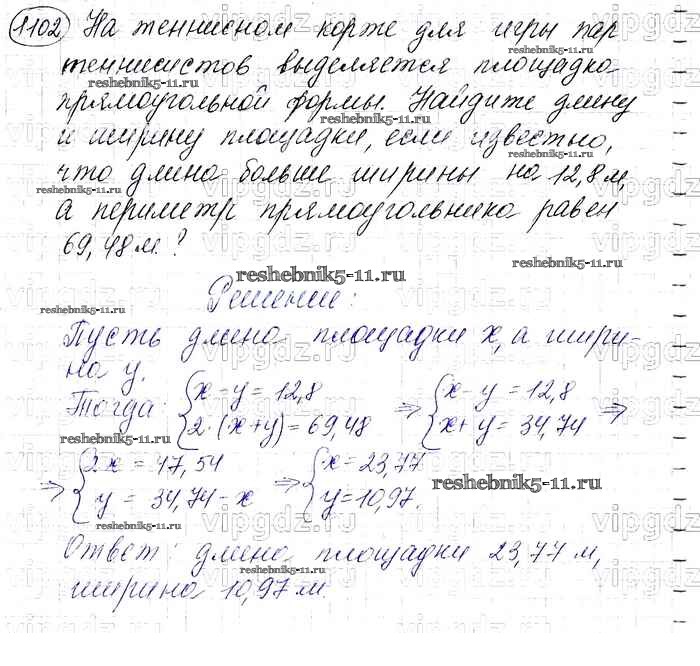 1102 На теннисном корте для игры пар
теннисистов выделяется площадка
прямоугольной формы. Найдите длину
и ширину площадки, если известно,
что длина больше ширины на 12,8 м,
а периметр прямоугольника равен
69,48 м.?
reshebnik5-11.ru
Решение:
Пусть длина площадки x, а шири-
на y.
Тогда: { x - y = 12,8 ⇒ { x - y = 12,8 ⇒
2·(x+y) = 69,48 x + y = 34,74
⇒ { 2x = 47,54 ⇒ { x = 23,77
y = 34,74 - x y = 10,97.
reshebnik5-11.ru
Ответ: длина площадки 23,77 м,
ширина 10,97 м.
vipgdz.ru